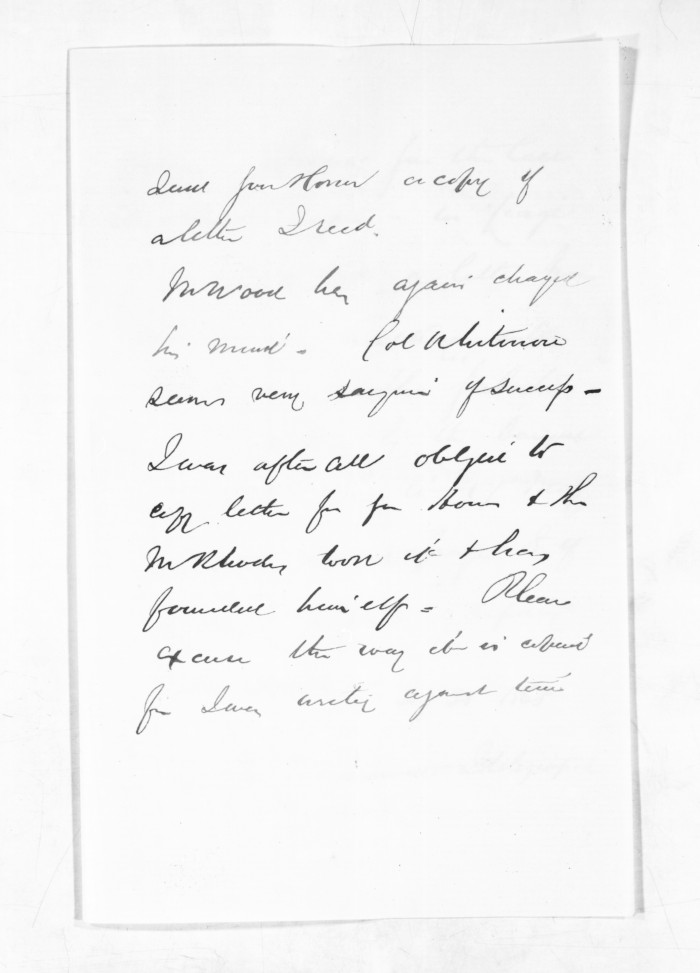 Send your Honor a copy of
a letter I recd.
Mr Wood has again changed
his mind - Col Whitmore
seems very sanguine of success -
I was after all obliged to
copy letter for yr Honor & then
Mr Rhodes took it & has
himself = Please
excuse the way it is
for I was writing against time